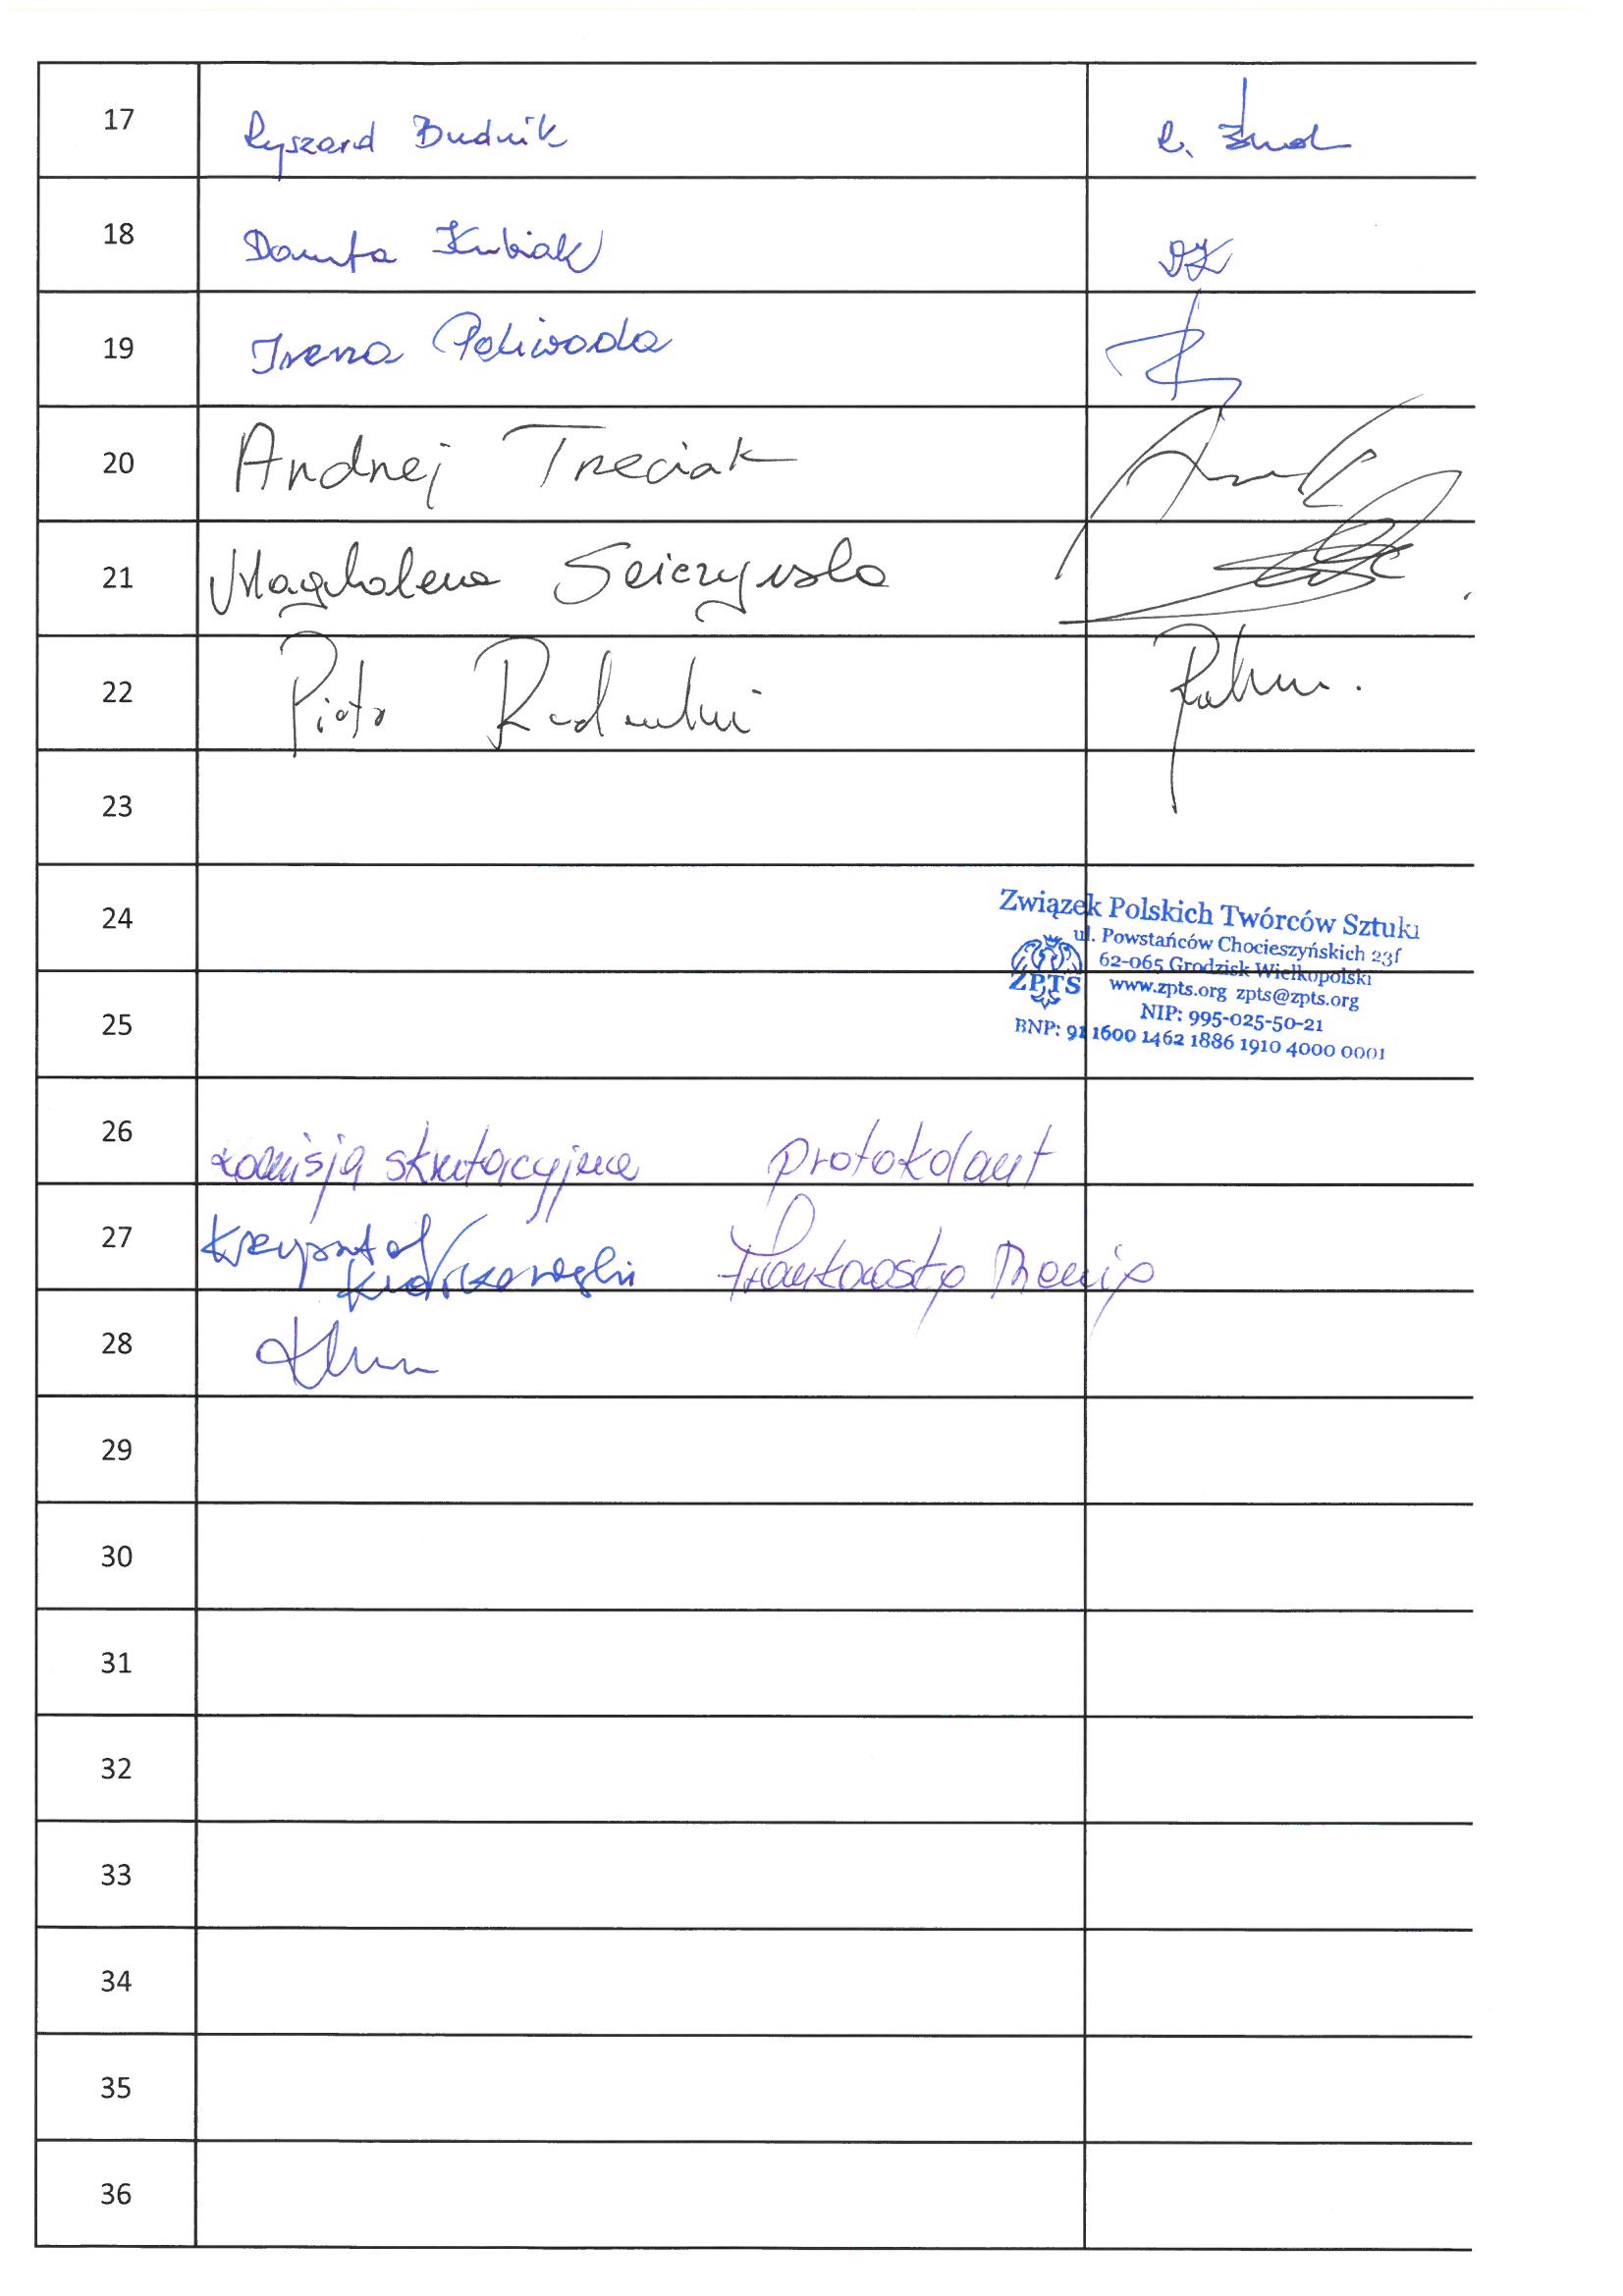 17 Ryszard Budnik
18 Danuta Kubiak DK
19 Irena Paliwoda
20 Andrzej Trzeciak
21 Magdalena
22 Piotr
23
24
Związek Polskich Twórców Sztuki
ul. Powstańców Chocieszyńskich 23f
62-065 Grodzisk Wielkopolski
ZPTS www.zpts.org zpts@zpts.org
NIP: 995-025-50-21
BNP: 91 1600 1462 1886 1910 4000 0001
25
26 komisja skrutacyjna protokolant
27 Krzysztof
28
29
30
31
32
33
34
35
36